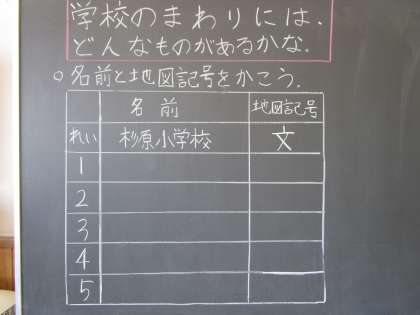 学校のまわりには.
どんなものがあるかな.
○名前と地図記号をかこう.
名前 地図記号
れい 杉原小学校 文
1
2
3
4
5